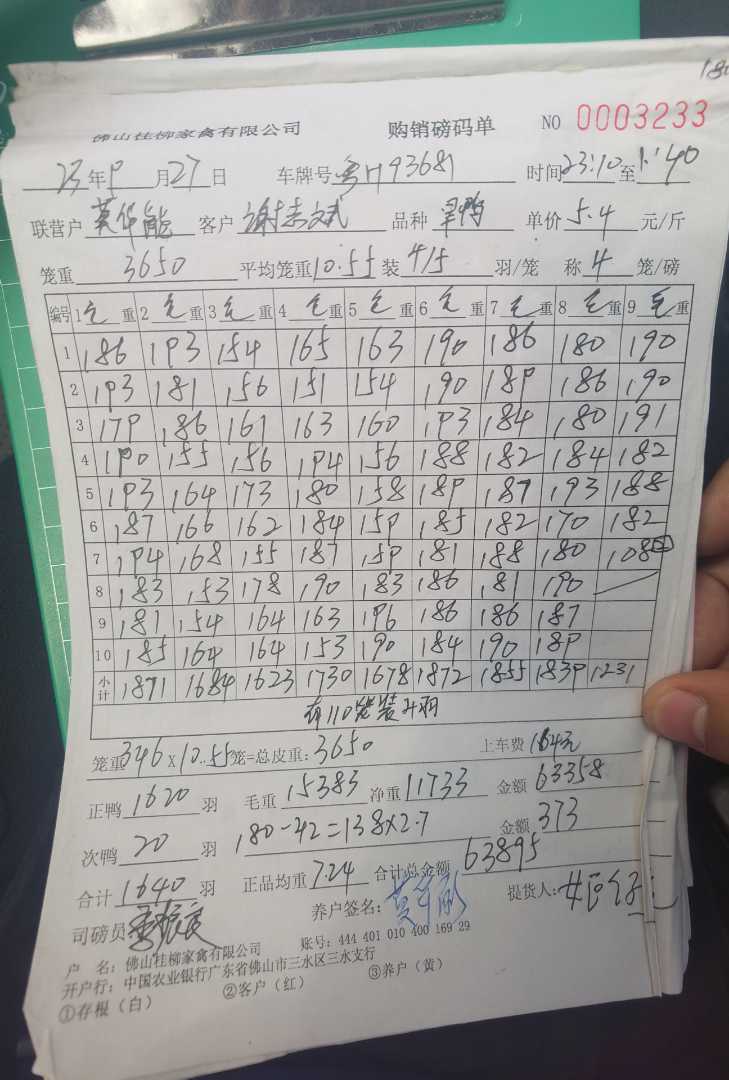 180
佛山桂柳家禽有限公司 购销磅码单 NO 0003233
23年9月27日 车牌号粤H93681 时间23:10至1:40
联营户莫华能 客户谢志斌 品种旱鸭 单价5.4元/斤
笼重3650 平均笼重10.55装4/5羽/笼 称4笼/磅
编号 1毛重 2毛重 3毛重 4毛重 5毛重 6毛重 7毛重 8毛重 9毛重
1 186 193 154 165 163 190 186 180 190
2 193 181 156 151 154 190 189 186 190
3 179 186 161 163 160 193 184 180 191
4 190 155 156 194 156 188 182 184 182
5 193 164 173 180 158 189 187 193 188
6 187 166 162 184 159 185 182 170 182
7 194 168 155 187 159 181 188 180 108
8 183 153 178 190 183 186 181 190
9 181 154 164 163 196 186 186 187
10 185 164 164 153 190 184 190 189
小计 1871 1684 1623 1730 1678 1872 1855 1839 1231
有110笼装羽
笼重346×10.55笼=总皮重:3650 上车费164元
正鸭1620羽 毛重15383净重11733 金额63358
次鸭20羽 180-42=138×2.7 金额373
合计1640羽 正品均重7.24 合计总金额63895
司磅员 养户签名: 提货人:
户 名:佛山桂柳家禽有限公司 账号:444 401 010 400 169 29
开户行:中国农业银行广东省佛山市三水区三水支行
①存根(白) ②客户(红) ③养户(黄)